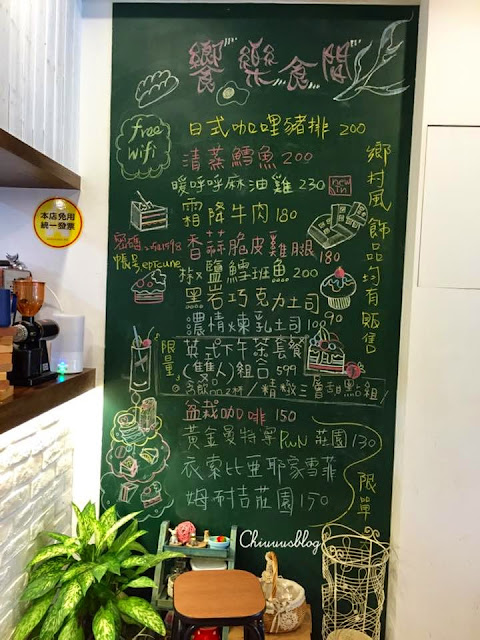 饗樂食間
free
wifi
日式咖哩豬排 200
清蒸鱈魚 200
暖呼呼麻油雞 230
new
霜降牛肉 180
香蒜脆皮雞腿 180
椒鹽鱈班魚 200
黑岩巧克力土司 90
濃情煉乳土司 100
限量
英式下午茶套餐
(雙人)組合 599
含飲品2杯/精緻三層甜點組
盆栽咖啡 150
黃金曼特寧PWN莊園 130
衣索比亞耶家雪菲
姆村吉莊園 150
限單
鄉村風飾品均有販售
密碼:
帳號:epicune
本店免用
統一發票
Chiuuusblog